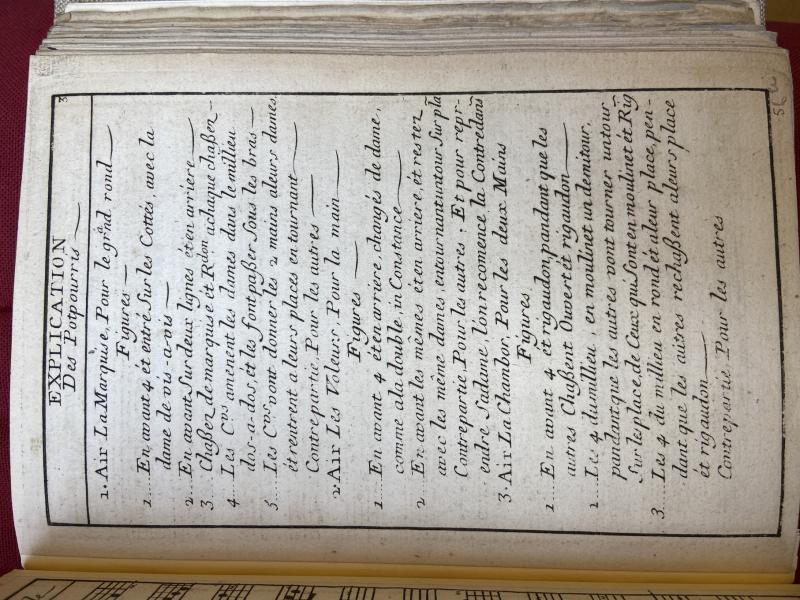 3
EXPLICATION
Des Potpourris
1. Air La Marquise, Pour le grand rond
Figures
1... En avant 4 et entré Sur les Cottés, avec la
dame de vis-a-vis
2... En avant Sur deux lignes et en arriere
3... Chaßez de marquise et Rdon achaque chaßez
4... Les Crs amenent les dames dans le milieu
dos-a-dos, et les font paßer Sous les bras
5... Les Crs vont donner les 2 mains aleurs dames
et rentrent a leurs places en tournant
Contrepartie. Pour les autres
2 Air Les Voleurs, Pour la main
Figures
1... En avant 4 et en arriere changés de dame,
comme ala double, in Constance
2... En avant les mêmes et en arriere, et restez
avec les même dames en tournant un tour Sur pla
Contrepartie. Pour les autres. Et pour repr-
endre Sadame, l'on recomence la Contredans
3. Air La Chambor, Pour les deux Mains
Figures
1... En avant 4 et rigaudon, pandant que les
autres Chaßent Ouvert et rigaudon
2... Les 4 du milieu, en moulinet un demi tour,
pandant que les autres vont tourner un tour
Sur les place de Ceux qui Sont en moulinet et Rig
3... Les 4 du millieu en rond et a leur place, pen-
dant que les autres rechaßent a leurs place
et rigaudon
Contrepartie. Pour les autres